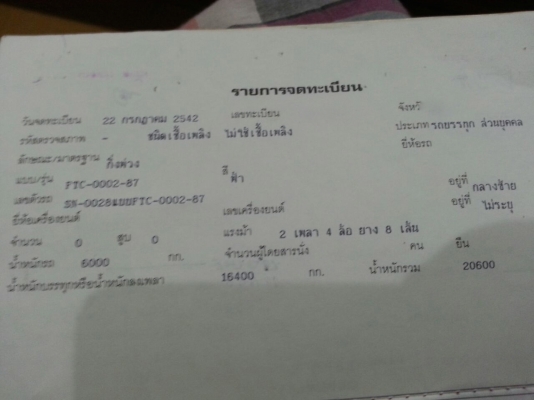 รายการจดทะเบียน
วันจดทะเบียน 22 กรกฎาคม 2542 เลขทะเบียน จังหวั
รหัสตรวจสภาพ - ชนิดเชื้อเพลิง ไม่ใช้เชื้อเพลิง ประเภท รถบรรทุก ส่วนบุคคล
ลักษณะ/มาตรฐาน กึ่งพ่วง ยี่ห้อรถ
แบบ/รุ่น FTC-0002-87 สี ฟ้า
เลขตัวรถ SN-0028แบบFTC-0002-87 อยู่ที่ กลางซ้าย
ยี่ห้อเครื่องยนต์ เลขเครื่องยนต์ อยู่ที่ ไม่ระบุ
จำนวน 0 สูบ 0 แรงม้า 2 เพลา 4 ล้อ ยาง 8 เส้น
น้ำหนักรถ 6000 กก. จำนวนผู้โดยสารนั่ง คน ยืน
น้ำหนักบรรทุกหรือน้ำหนักลงเพลา 16400 กก. น้ำหนักรวม 20600